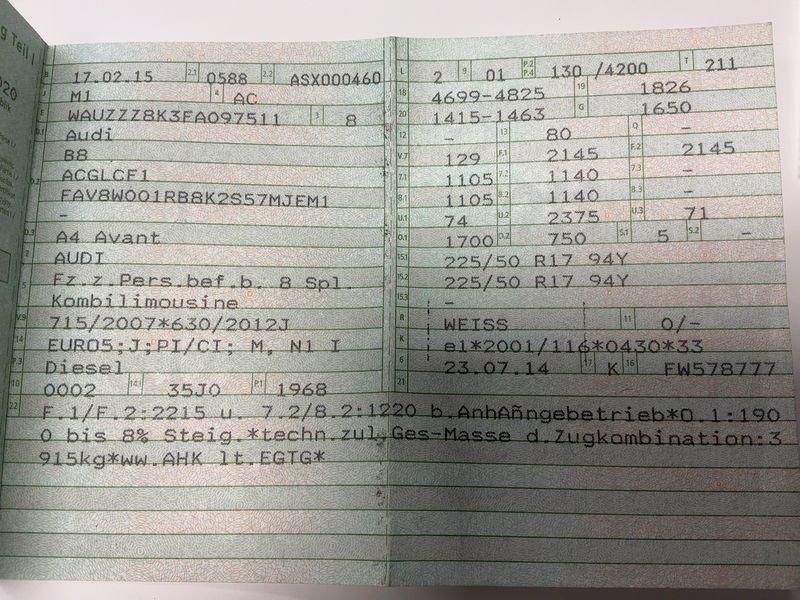 g Teil I
B 17.02.15 2.1 0588 2.2 ASX000460
J M1 4 AC
E WAUZZZ8K3FA097511 3 8
D.1 Audi
B8
D.2 ACGLCF1
FAV8W001RB8K2S57MJEM1
-
D.3 A4 Avant
2 AUDI
5 Fz.z.Pers.bef.b. 8 Spl.
Kombilimousine
V.9 715/2007*630/2012J
14 EURO5;J;PI/CI; M, N1 I
P.3 Diesel
10 0002 14.1 35J0 P.1 1968
L 2 9 01 P.2 P.4 130 /4200 T 211
18 4699-4825 19 1826
20 1415-1463 G 1650
12 - 13 80 Q -
V.7 129 F.1 2145 F.2 2145
7.1 1105 7.2 1140 7.3 -
8.1 1105 8.2 1140 8.3 -
U.1 74 U.2 2375 U.3 71
O.1 1700 O.2 750 S.1 5 S.2 -
15.1 225/50 R17 94Y
15.2 225/50 R17 94Y
15.3 -
R WEISS 11 0/-
K e1*2001/116*0430*33
6 23.07.14 17 K 16 FW578777
21
22 F.1/F.2:2215 u. 7.2/8.2:1220 b.AnhAñngebetrieb*O.1:190
0 bis 8% Steig.*techn.zul.Ges-Masse d.Zugkombination:3
915kg*ww.AHK lt.EGTG*